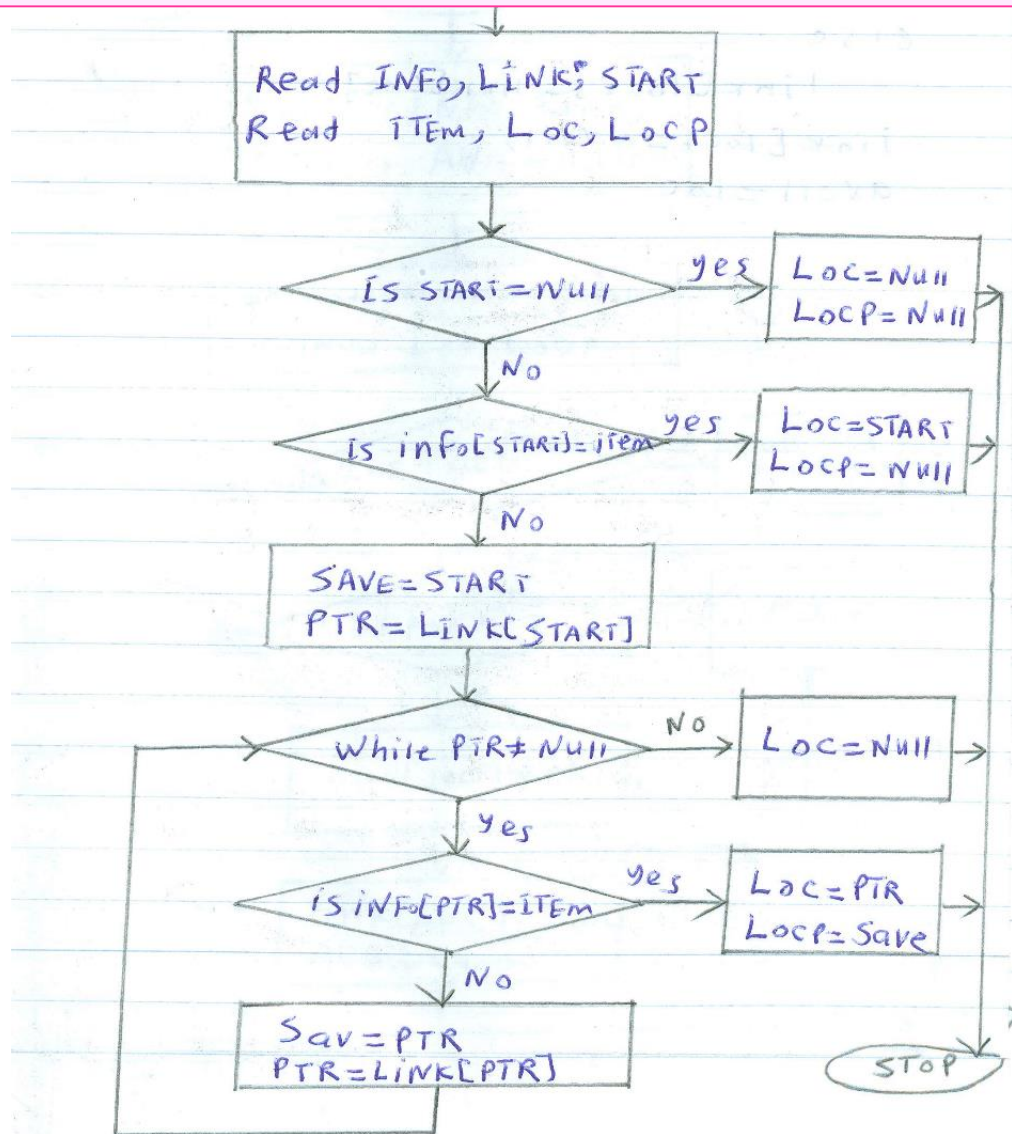 Read INFO, LINK, START
Read ITEM, LOC, LOCP
Is START=Null
yes
LOC=Null
LOCP=Null
No
is info[START]=item
yes
LOC=START
LOCP=Null
No
SAVE=START
PTR=LINK[START]
While PTR≠Null
No
LOC=Null
yes
is INFO[PTR]=ITEM
yes
LOC=PTR
LOCP=Save
No
Sav=PTR
PTR=LINK[PTR]
STOP